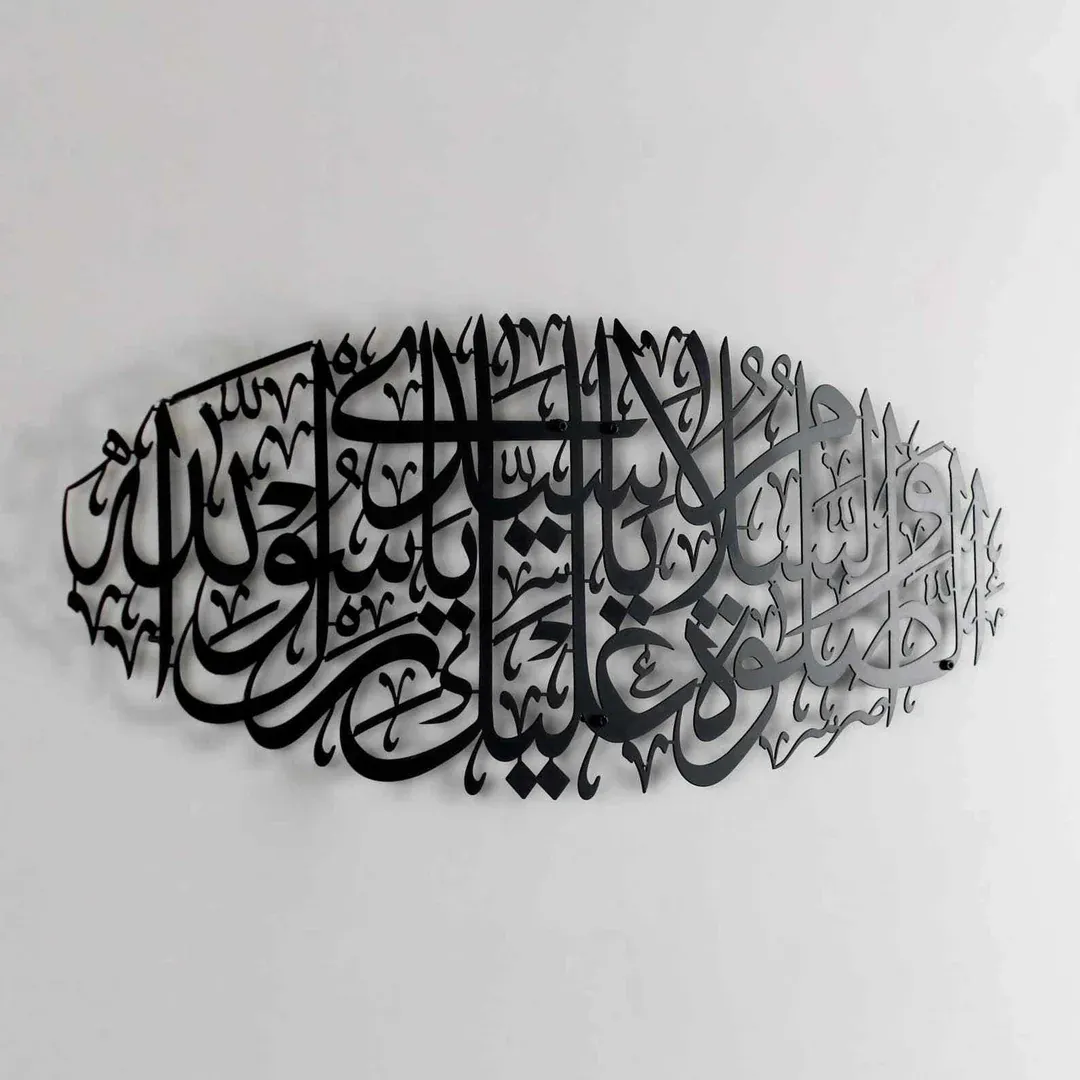 الصلوة والسلام عليك يا سيدي يا رسول الله